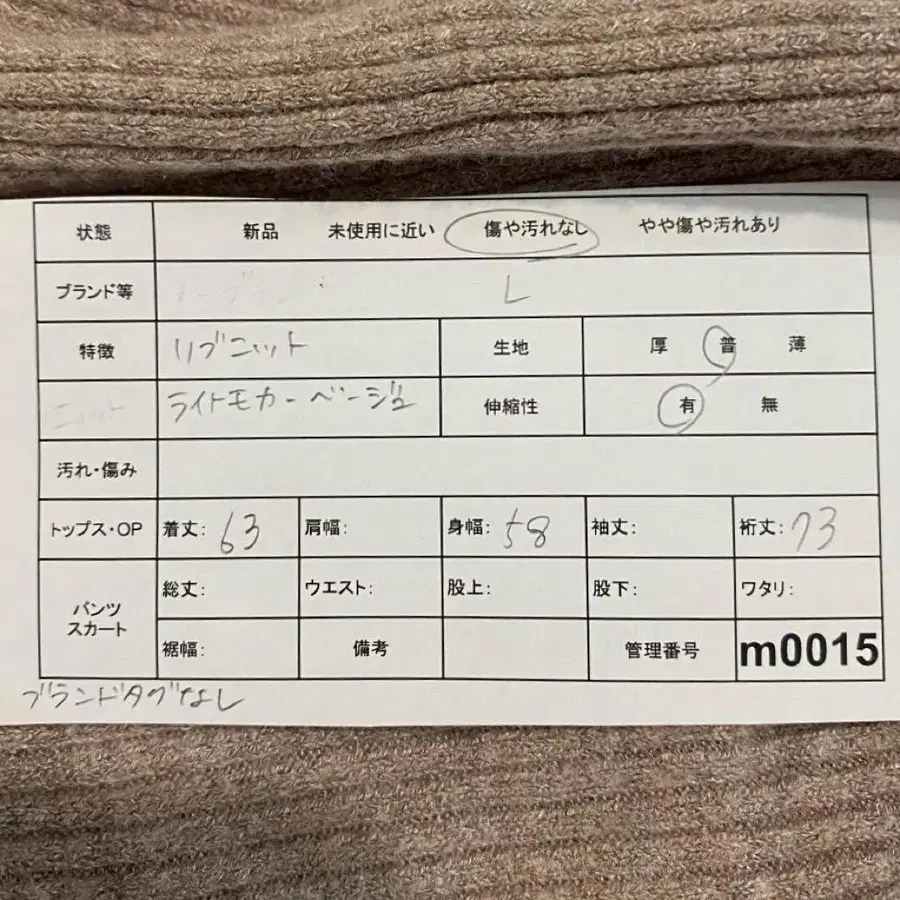 状態 新品 未使用に近い 傷や汚れなし やや傷や汚れあり
ブランド等 ノーブランド L
特徴 リブニット 生地 厚 普 薄
ニット ライトモカーベージュ 伸縮性 有 無
汚れ・傷み
トップス・OP 着丈: 63 肩幅: 身幅: 58 袖丈: 裄丈: 73
パンツ スカート 総丈: ウエスト: 股上: 股下: ワタリ:
裾幅: 備考 管理番号 m0015
ブランドタグなし